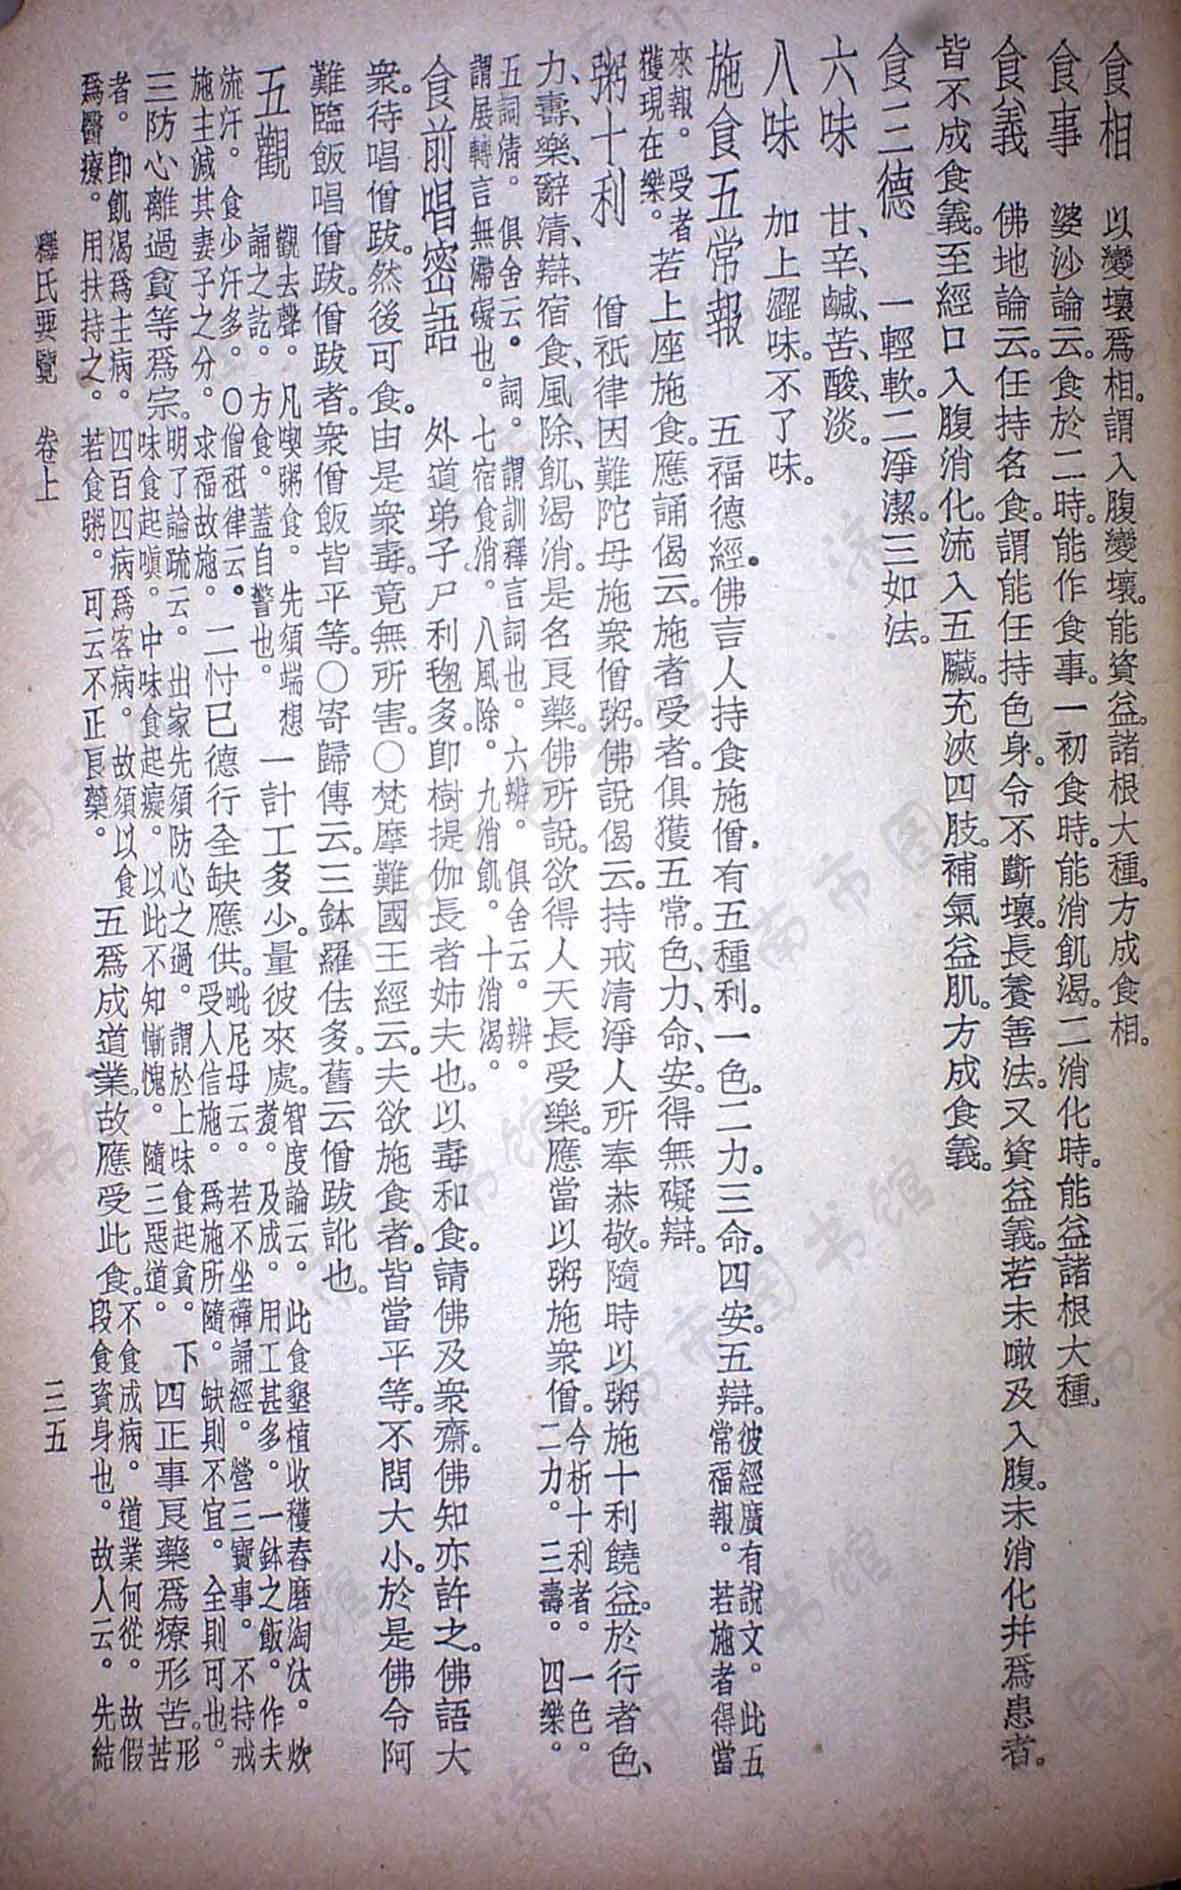 食相　以變壞爲相。謂入腹變壞。能資益。諸根大種。方成食相。
食事　婆沙論云。食於二時。能作食事。一初食時。能消飢渴。二消化時。能益諸根大種。
食義　佛地論云。任持名食。謂能任持色身。令不斷壞。長養善法。又資益義。若未噉及入腹。未消化幷爲患者。
皆不成食義。至經口入腹消化。流入五臟。充浹四肢。補氣益肌。方成食義。
食三德　一輕軟。二淨潔。三如法。
六味　甘、辛、鹹、苦、酸、淡。
八味　加上澀味。不了味。
施食五常報　五福德經。佛言人持食施僧。有五種利。一色。二力。三命。四安。五辯。彼經廣有說文。此五常福報。若施者得當
來報。受者獲現在樂。若上座施食。應誦偈云。施者受者。俱獲五常。色、力、命、安。得無礙辯。
粥十利　僧祇律因難陀母施衆僧粥。佛說偈云。持戒清淨人所奉恭敬。隨時以粥施十利饒益。於行者色、
力、壽、樂、辭清、辯、宿食、風除、飢、渴消。是名良藥。佛所說。欲得人天長受樂。應當以粥施衆僧。今析十利者。一色。二力。三壽。四樂。
五詞清。俱舍云。詞。謂訓釋言詞也。六辨。俱舍云。辨。謂展轉言無滯礙也。七宿食消。八風除。九消飢。十消渴。
食前唱密語　外道弟子尸利毱多。卽樹提伽長者姊夫也。以毒和食。請佛及衆齋。佛知亦許之。佛語大
衆。待唱僧跋。然後可食。由是衆毒。竟無所害。〇梵摩難國王經云。夫欲施食者。皆當平等。不問大小。於是佛令阿
難臨飯唱僧跋。僧跋者。衆僧飯皆平等。〇寄歸傳云。三鉢羅佉多。舊云僧跋訛也。
五觀　觀去聲。凡喫粥食。先須端想誦之訖。方食。蓋自警也。一計工多少。量彼來處。智度論云。此食墾植收穫舂磨淘汰。炊煑。及成。用工甚多。一鉢之飯。作夫
流汗。食少汗多。〇僧祇律云。施主減其妻子之分。求福故施。二忖己德行全缺應供。毗尼母云。若不坐禪誦經。營三寶事。不持戒受人信施。爲施所隨。缺則不宜。全則可也。
三防心離過貪等爲宗。明了論疏云。出家先須防心之過。謂於上味食起貪。下味食起嗔。中味食起癡。以此不知慚愧。隨三惡道。四正事良藥爲療形苦。形苦
者。卽飢渴爲主病。四百四病爲客病。故須以食爲醫療。用扶持之。若食粥。可云不正良藥。五爲成道業。故應受此食。不食成病。道業何從。故假段食資身也。故人云。先結
釋氏要覽　卷上　二五